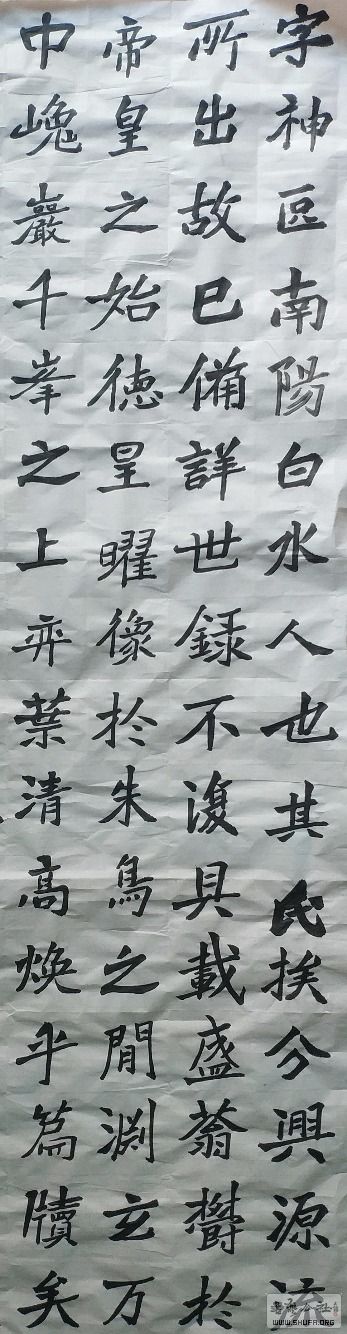 字神南陽白水人也其民挨分興源流
所出故已備詳世録不復具載盛蓊欝於
帝皇之始德皇曜像於朱鳥之閒淵玄万
中巉巖千峯之上弈葉清高煥乎篇牘矣
WWW.SHUFA.ORG